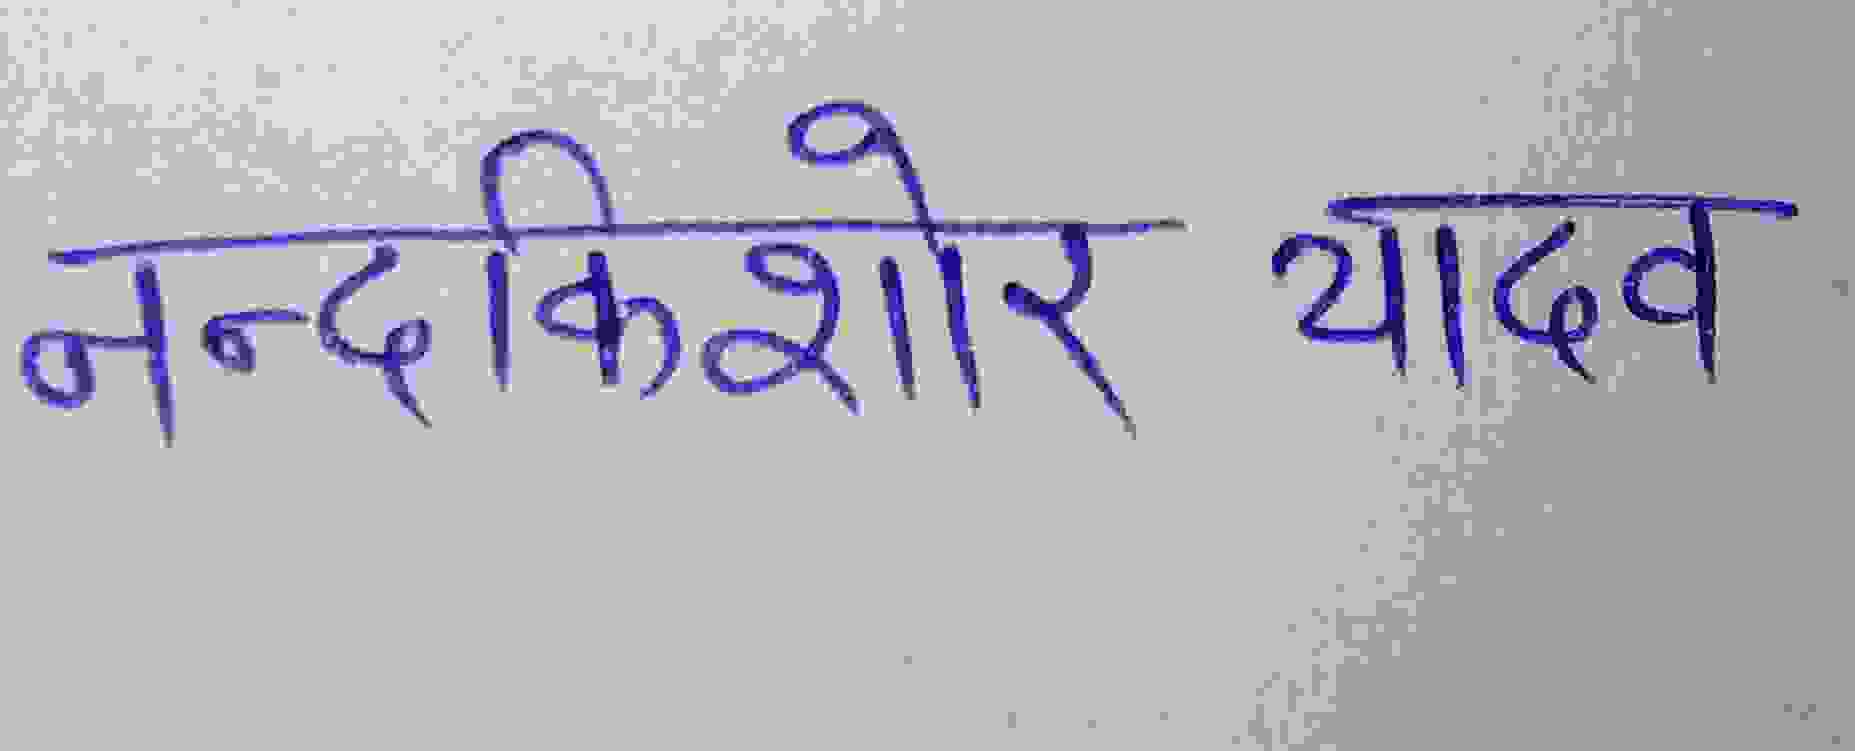 नन्दकिशोर यादव